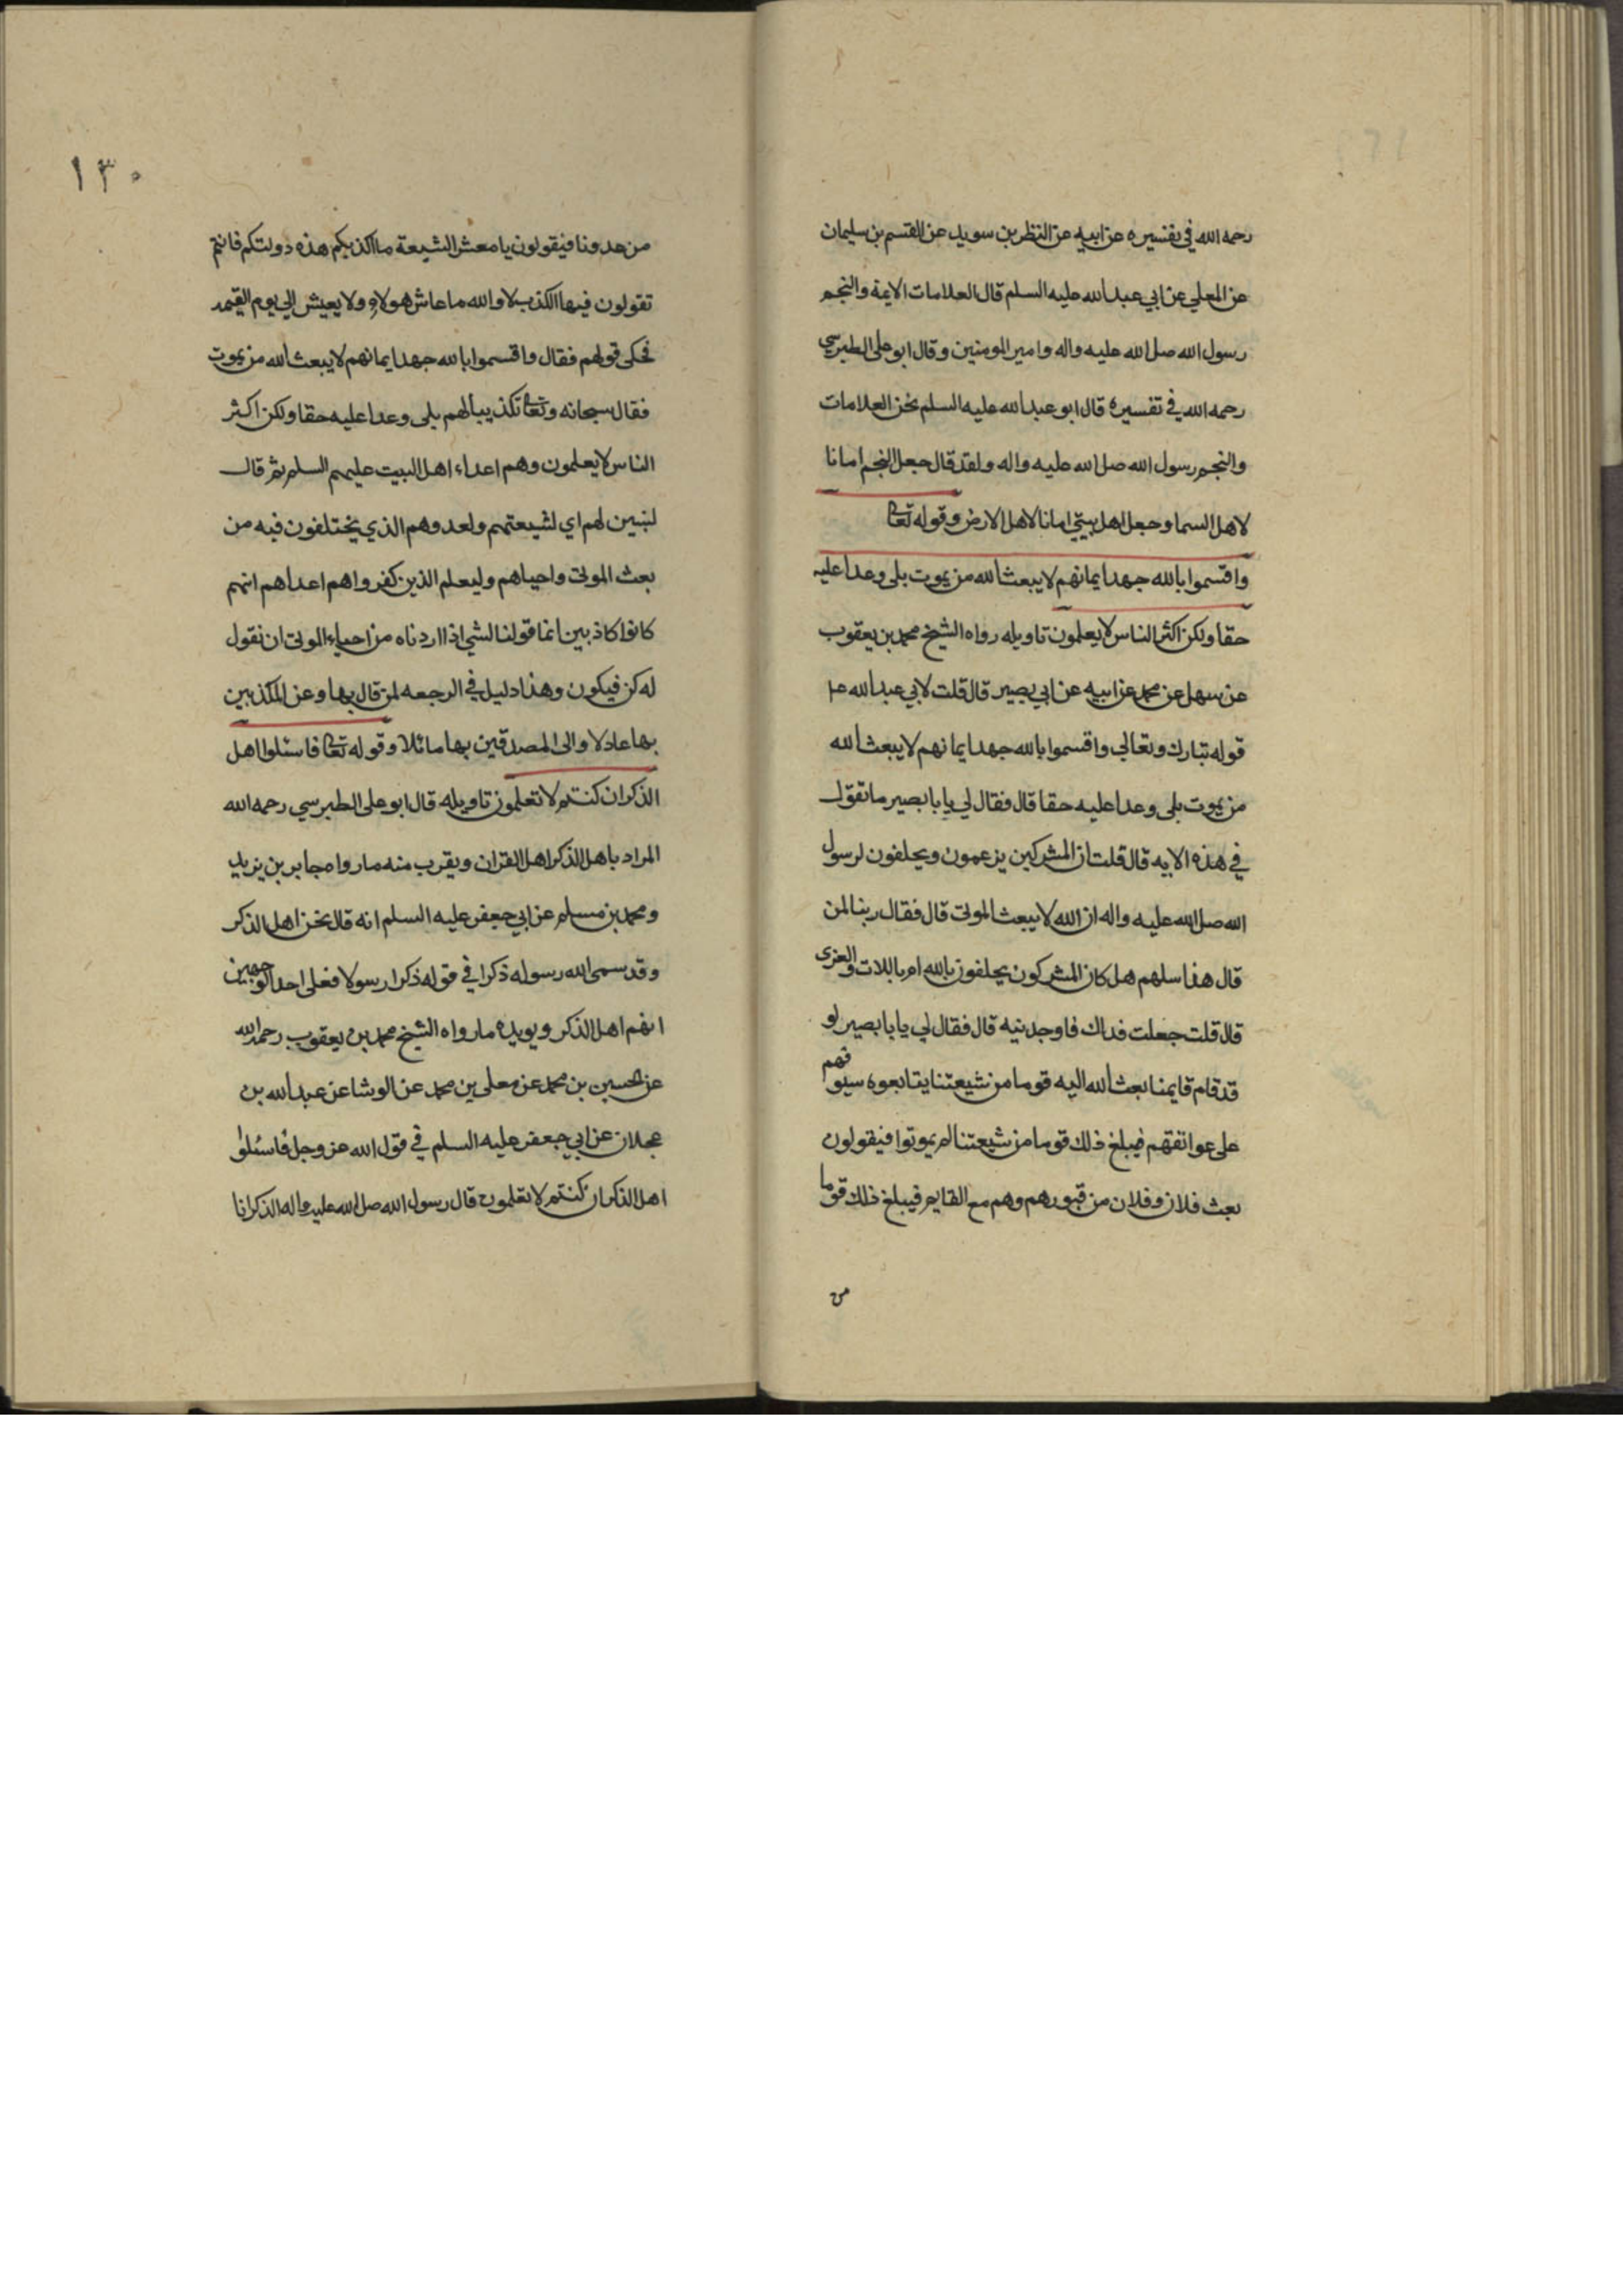 رحمه الله في تفسيره عن ابيه عن النظر بن سويد عن القسم بن سليمان
عن المعلي عن ابي عبد الله عليه السلم قال العلامات الايمة والنجم
رسول الله صلى الله عليه واله وامير المومنين وقال ابو على الطبرسي
رحمه الله في تفسيره قال ابو عبد الله عليه السلم نحن العلامات
والنجم رسول الله صلى الله عليه واله ولقد قال جعل النجم امانا
لاهل السما وجعل اهل بيتي امانا لاهل الارض وقوله تعالى
واقسموا بالله جهد ايمانهم لا يبعث الله من يموت بلى وعدا عليه
حقا ولكن اكثر الناس لا يعلمون تاويله رواه الشيخ محمد بن يعقوب
عن سهل عن محمد عن ابيه عن ابي بصير قال قلت لابي عبد الله ع
قوله تبارك وتعالى واقسموا بالله جهد ايمانهم لا يبعث الله
من يموت بلى وعدا عليه حقا قال فقال لي يا با بصير ما تقول
في هذه الايه قال قلت ان المشركين يزعمون ويحلفون لرسول
الله صلى الله عليه واله ان الله لا يبعث الموتى قال فقال ربنا لمن
قال هذا سلهم هل كان المشركون يحلفون بالله ام باللات والعزى
قال قلت جعلت فداك فاوجدنيه قال فقال لي يا با بصير لو
قد قام قايمنا بعث الله اليه قوما من شيعتنا يتابعوه سيوفهم
على عواتقهم فيبلغ ذلك قوما من شيعتنا لم يموتوا فيقولون
بعث فلان وفلان من قبورهم وهم مع القايم فيبلغ ذلك قوما
من
١٣٠
من عدونا فيقولون يا معشر الشيعة ما اكذبكم هذه دولتكم فانتم
تقولون فيها الكذب لا والله ما عاش هولاء ولا يعيش الي يوم القيمه
فحكى قولهم فقال واقسموا بالله جهد ايمانهم لا يبعث الله من يموت
فقال سبحانه وتعالى تكذيبا لهم بلى وعدا عليه حقا ولكن اكثر
الناس لا يعلمون وهم اعداء اهل البيت عليهم السلم ثم قال
لنبين لهم اي لشيعتهم ولعدوهم الذي يختلفون فيه من
بعث الموتى واحياهم وليعلم الذين كفروا هم اعداهم انهم
كانوا كاذبين انما قولنا لشي اذا اردناه من احياء الموتى ان نقول
له كن فيكون وهذا دليل في الرجعه لمن قال بها وعن المكذبين
بها عادلا والى المصدقين بها مائلا وقوله تعالى فاسئلوا اهل
الذكر ان كنتم لا تعلمون تاويله قال ابو على الطبرسي رحمه الله
المراد باهل الذكر اهل القران ويقرب منه ما رواه جابر بن يزيد
ومحمد بن مسلم عن ابي جعفر عليه السلم انه قال نحن اهل الذكر
وقد سمى الله رسوله ذكرا في قوله ذكرا رسولا فعلى احد الوجهين
انهم اهل الذكر ويويده ما رواه الشيخ محمد بن يعقوب رحمه الله
عن الحسين بن محمد عن معلى بن محمد عن الوشا عن عبد الله بن
عجلان عن ابي جعفر عليه السلم في قول الله عز وجل فاسئلوا
اهل الذكر ان كنتم لا تعلمون قال رسول الله صلى الله عليه واله الذكر انا